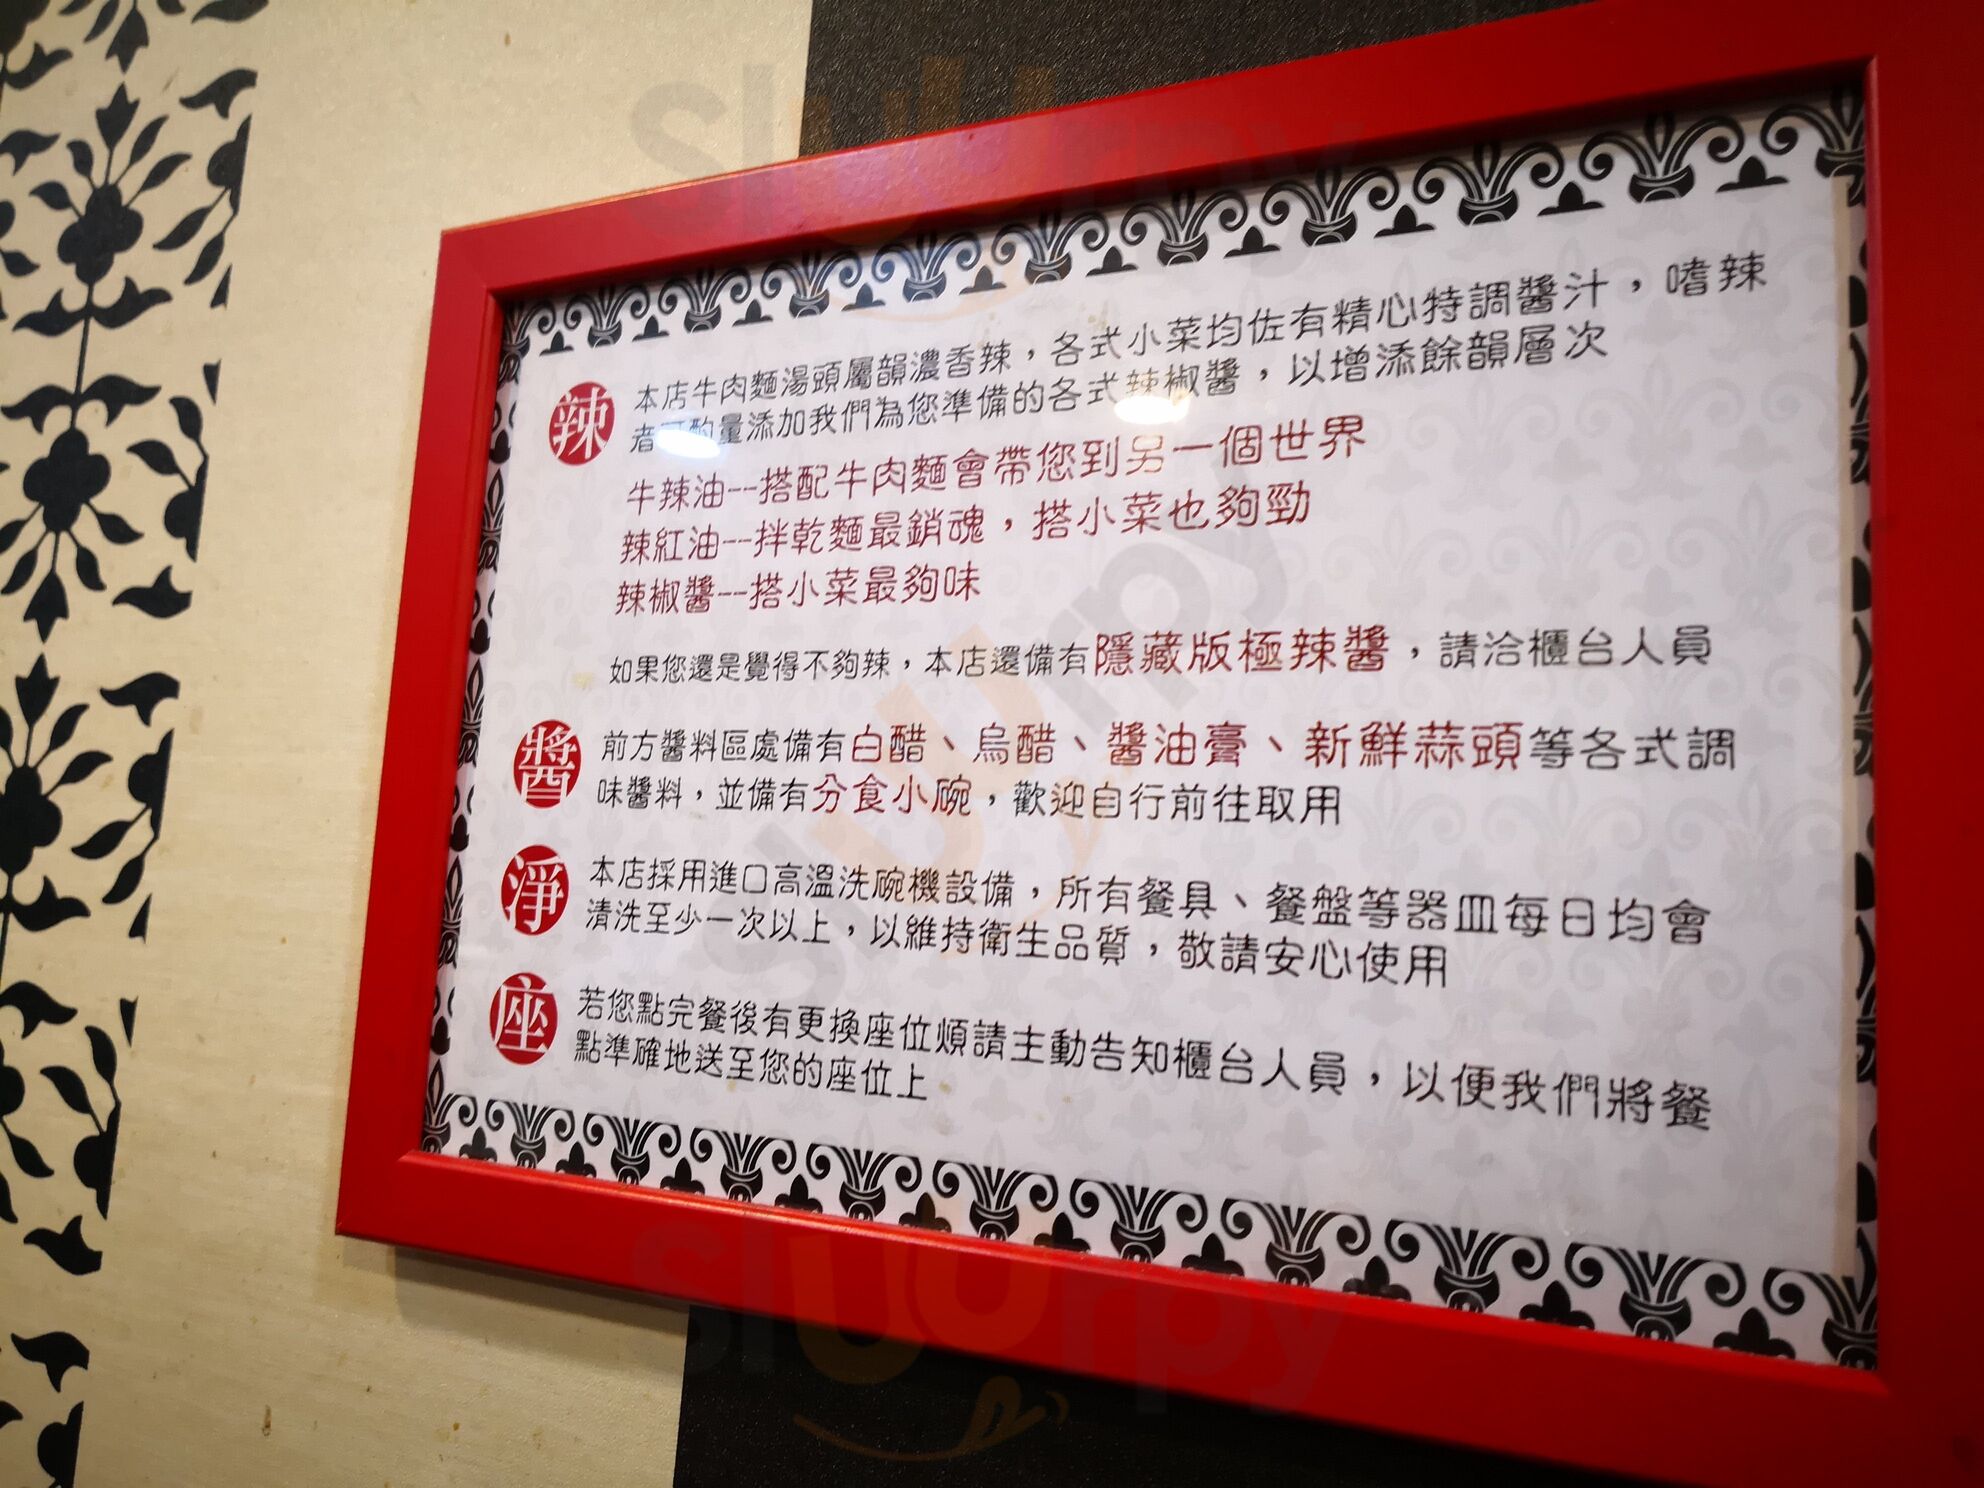 辣 本店牛肉麵湯頭屬韻濃香辣，各式小菜均佐有精心特調醬汁，嗜辣
者可酌量添加我們為您準備的各式辣椒醬，以增添餘韻層次
牛辣油--搭配牛肉麵會帶您到另一個世界
辣紅油--拌乾麵最銷魂，搭小菜也夠勁
辣椒醬--搭小菜最夠味
如果您還是覺得不夠辣，本店還備有隱藏版極辣醬，請洽櫃台人員
醬 前方醬料區處備有白醋、烏醋、醬油膏、新鮮蒜頭等各式調
味醬料，並備有分食小碗，歡迎自行前往取用
淨 本店採用進口高溫洗碗機設備，所有餐具、餐盤等器皿每日均會
清洗至少一次以上，以維持衛生品質，敬請安心使用
座 若您點完餐後有更換座位煩請主動告知櫃台人員，以便我們將餐
點準確地送至您的座位上
sluurpy
sluurpy
sluurpy